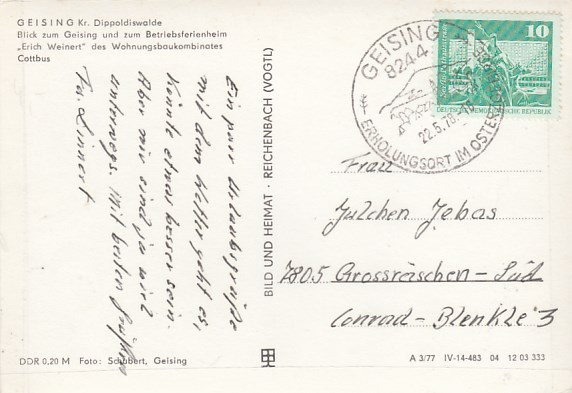 GEISING Kr. Dippoldiswalde
Blick zum Geising und zum Betriebsferienheim
„Erich Weinert" des Wohnungsbaukombinates
Cottbus
Ein paar Urlaubsgrüße
mit dem Wetter geht es,
könnte etwas besser sein.
Aber wir sind ja viel
unterwegs. Mit besten Grüßen
Fa. Linnert
BILD UND HEIMAT · REICHENBACH (VOGTL)
GEISING
8244
22.5.78
ERHOLUNGSORT IM OSTERZ
10
DEUTSCHE DEMOKRATISCHE REPUBLIK
Frau
Julchen Jebas
7805 Grossräschen - Süd
Conrad - Blenkle 3
DDR 0,20 M Foto: Schubert, Geising
A 3/77 IV-14-483 04 12 03 333